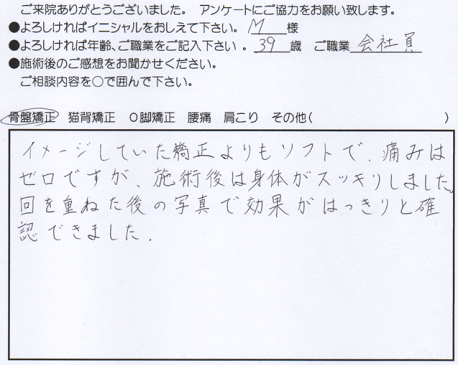 ご来院ありがとうございました。 アンケートにご協力をお願い致します。
●よろしければイニシャルをおしえて下さい。 M 様
●よろしければ年齢、ご職業をご記入下さい。 39 歳 ご職業 会社員
●施術後のご感想をお聞かせください。
ご相談内容を○で囲んで下さい。
骨盤矯正 猫背矯正 O脚矯正 腰痛 肩こり その他( )
イメージしていた矯正よりもソフトで、痛みは
ゼロですが、施術後は身体がスッキリしました。
回を重ねた後の写真で効果がはっきりと確
認できました.